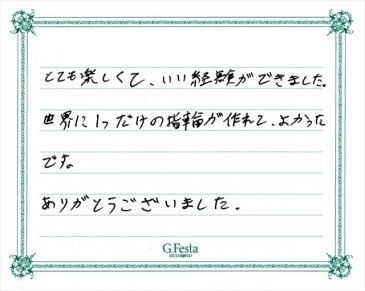 とても楽しくて、いい経験ができました。
世界に1つだけの指輪が作れて、よかった
です。
ありがとうございました。
G.Festa
DIAMOND